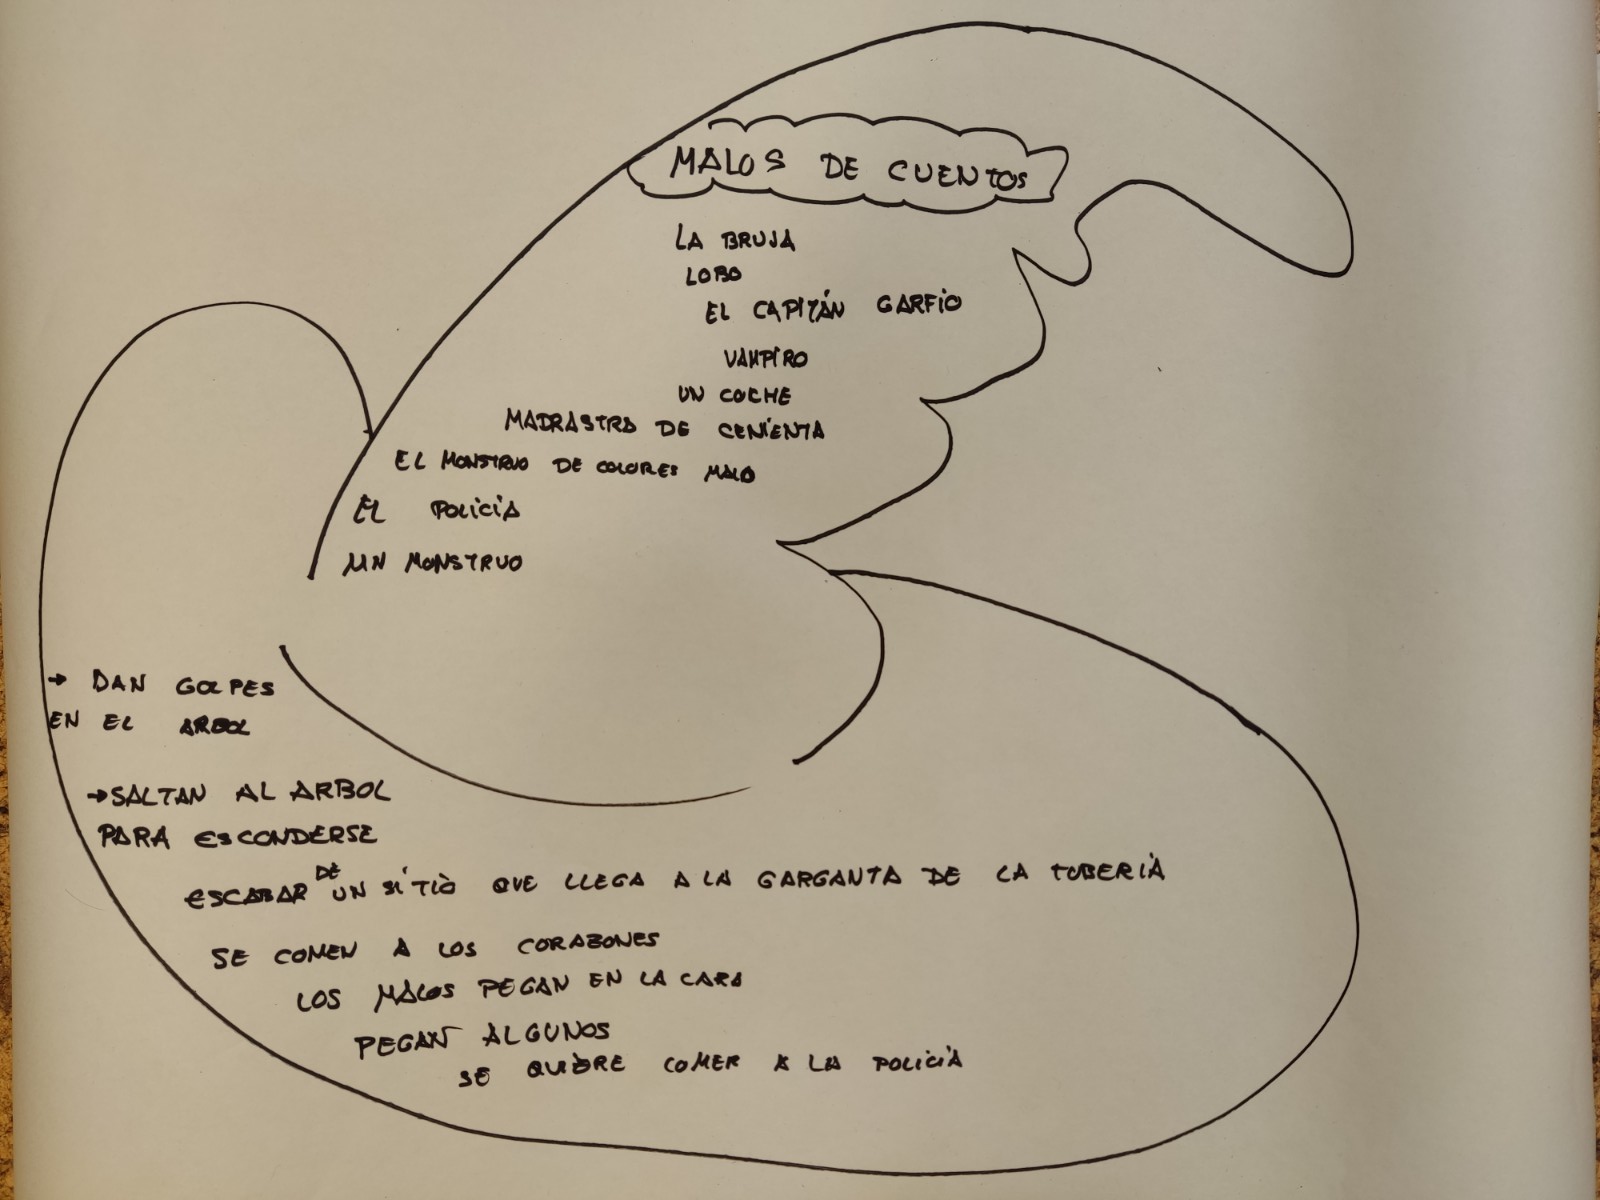 MALOS DE CUENTOS
LA BRUJA
LOBO
EL CAPITÁN GARFIO
VAMPIRO
UN COCHE
MADRASTRA DE CENIENTA
EL MONSTRUO DE COLORES MALO
EL POLICIA
UN MONSTRUO
→ DAN GOLPES
EN EL ARBOL
→ SALTAN AL ARBOL
PARA ESCONDERSE
ESCABAR DE UN SITIO QUE LLEGA A LA GARGANTA DE LA TUBERIA
SE COMEN A LOS CORAZONES
LOS MALOS PEGAN EN LA CARA
PEGAN ALGUNOS
SE QUIERE COMER A LA POLICIA